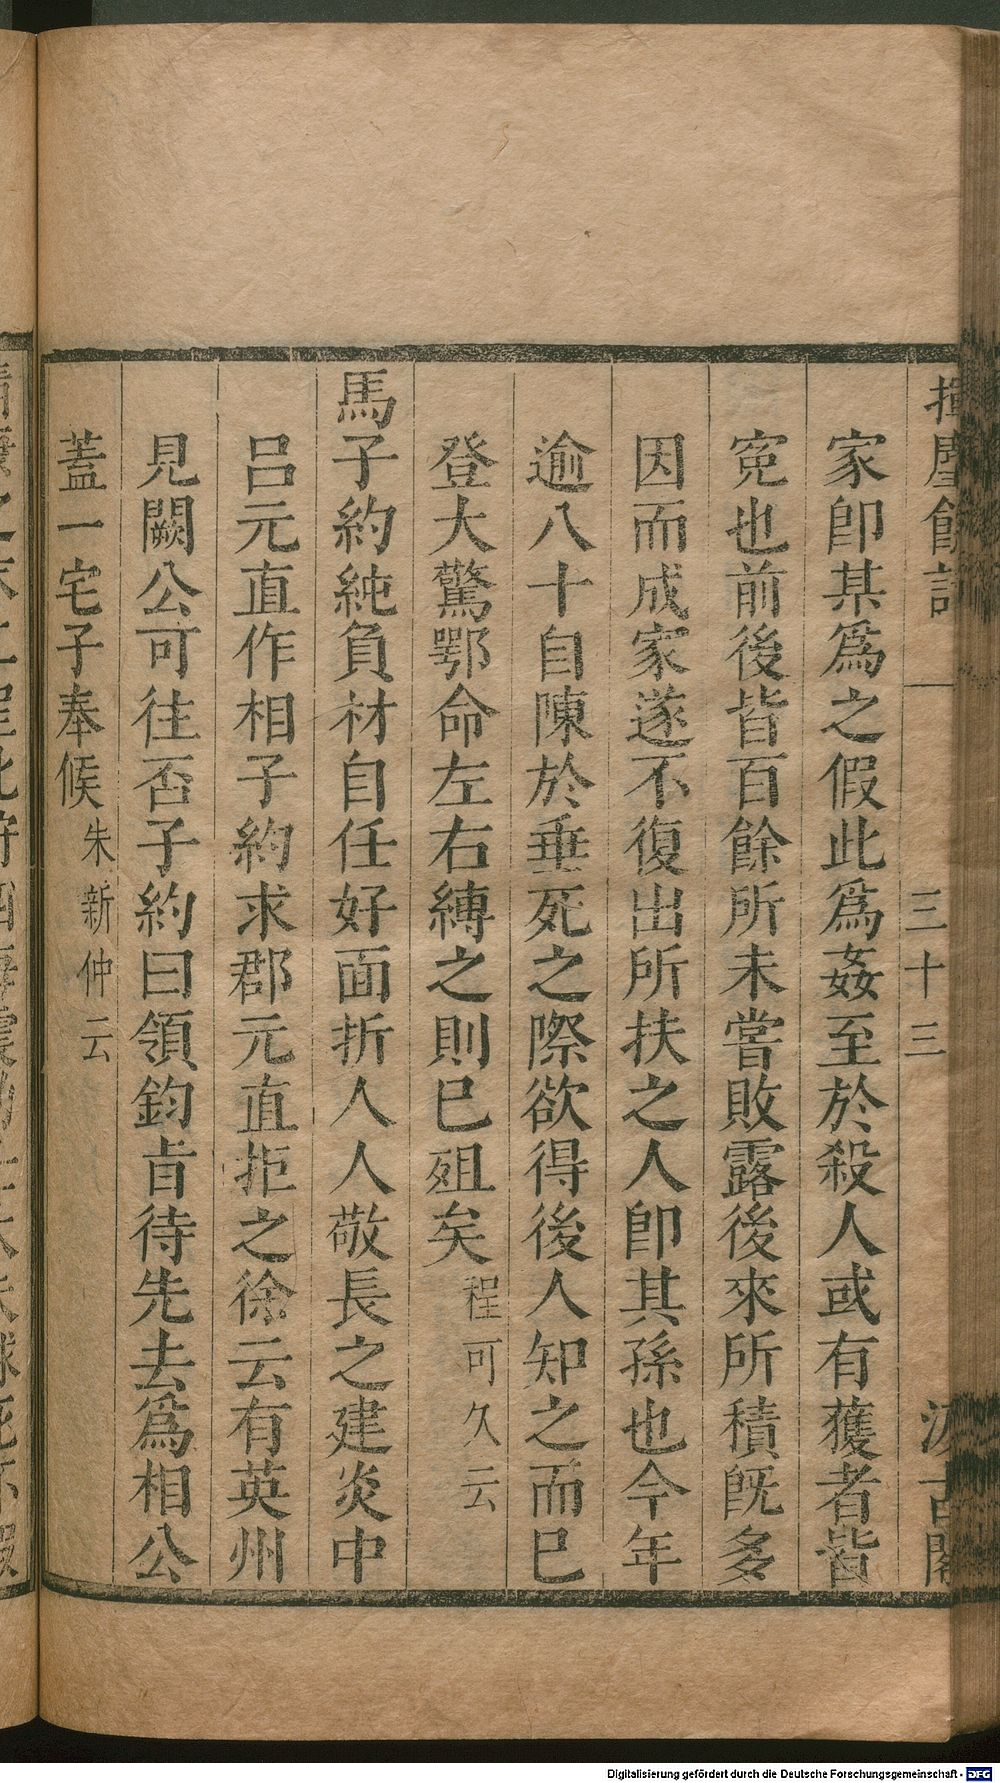 揮麈餘話
三十三
汲古閣
家卽某爲之假此爲姦至於殺人或有獲者皆
寃也前後皆百餘所未嘗敗露後來所積旣多
因而成家遂不復出所扶之人卽其孫也今年
逾八十自陳於垂死之際欲得後人知之而巳
登大驚鄂命左右縛之則巳殂矣程可久云
馬子約純負材自任好面折人人敬長之建炎中
呂元直作相子約求郡元直拒之徐云有英州
見闕公可往否子約曰領鈞旨待先去爲相公
蓋一宅子奉候朱新仲云
Digitalisierung gefördert durch die Deutsche Forschungsgemeinschaft - DFG